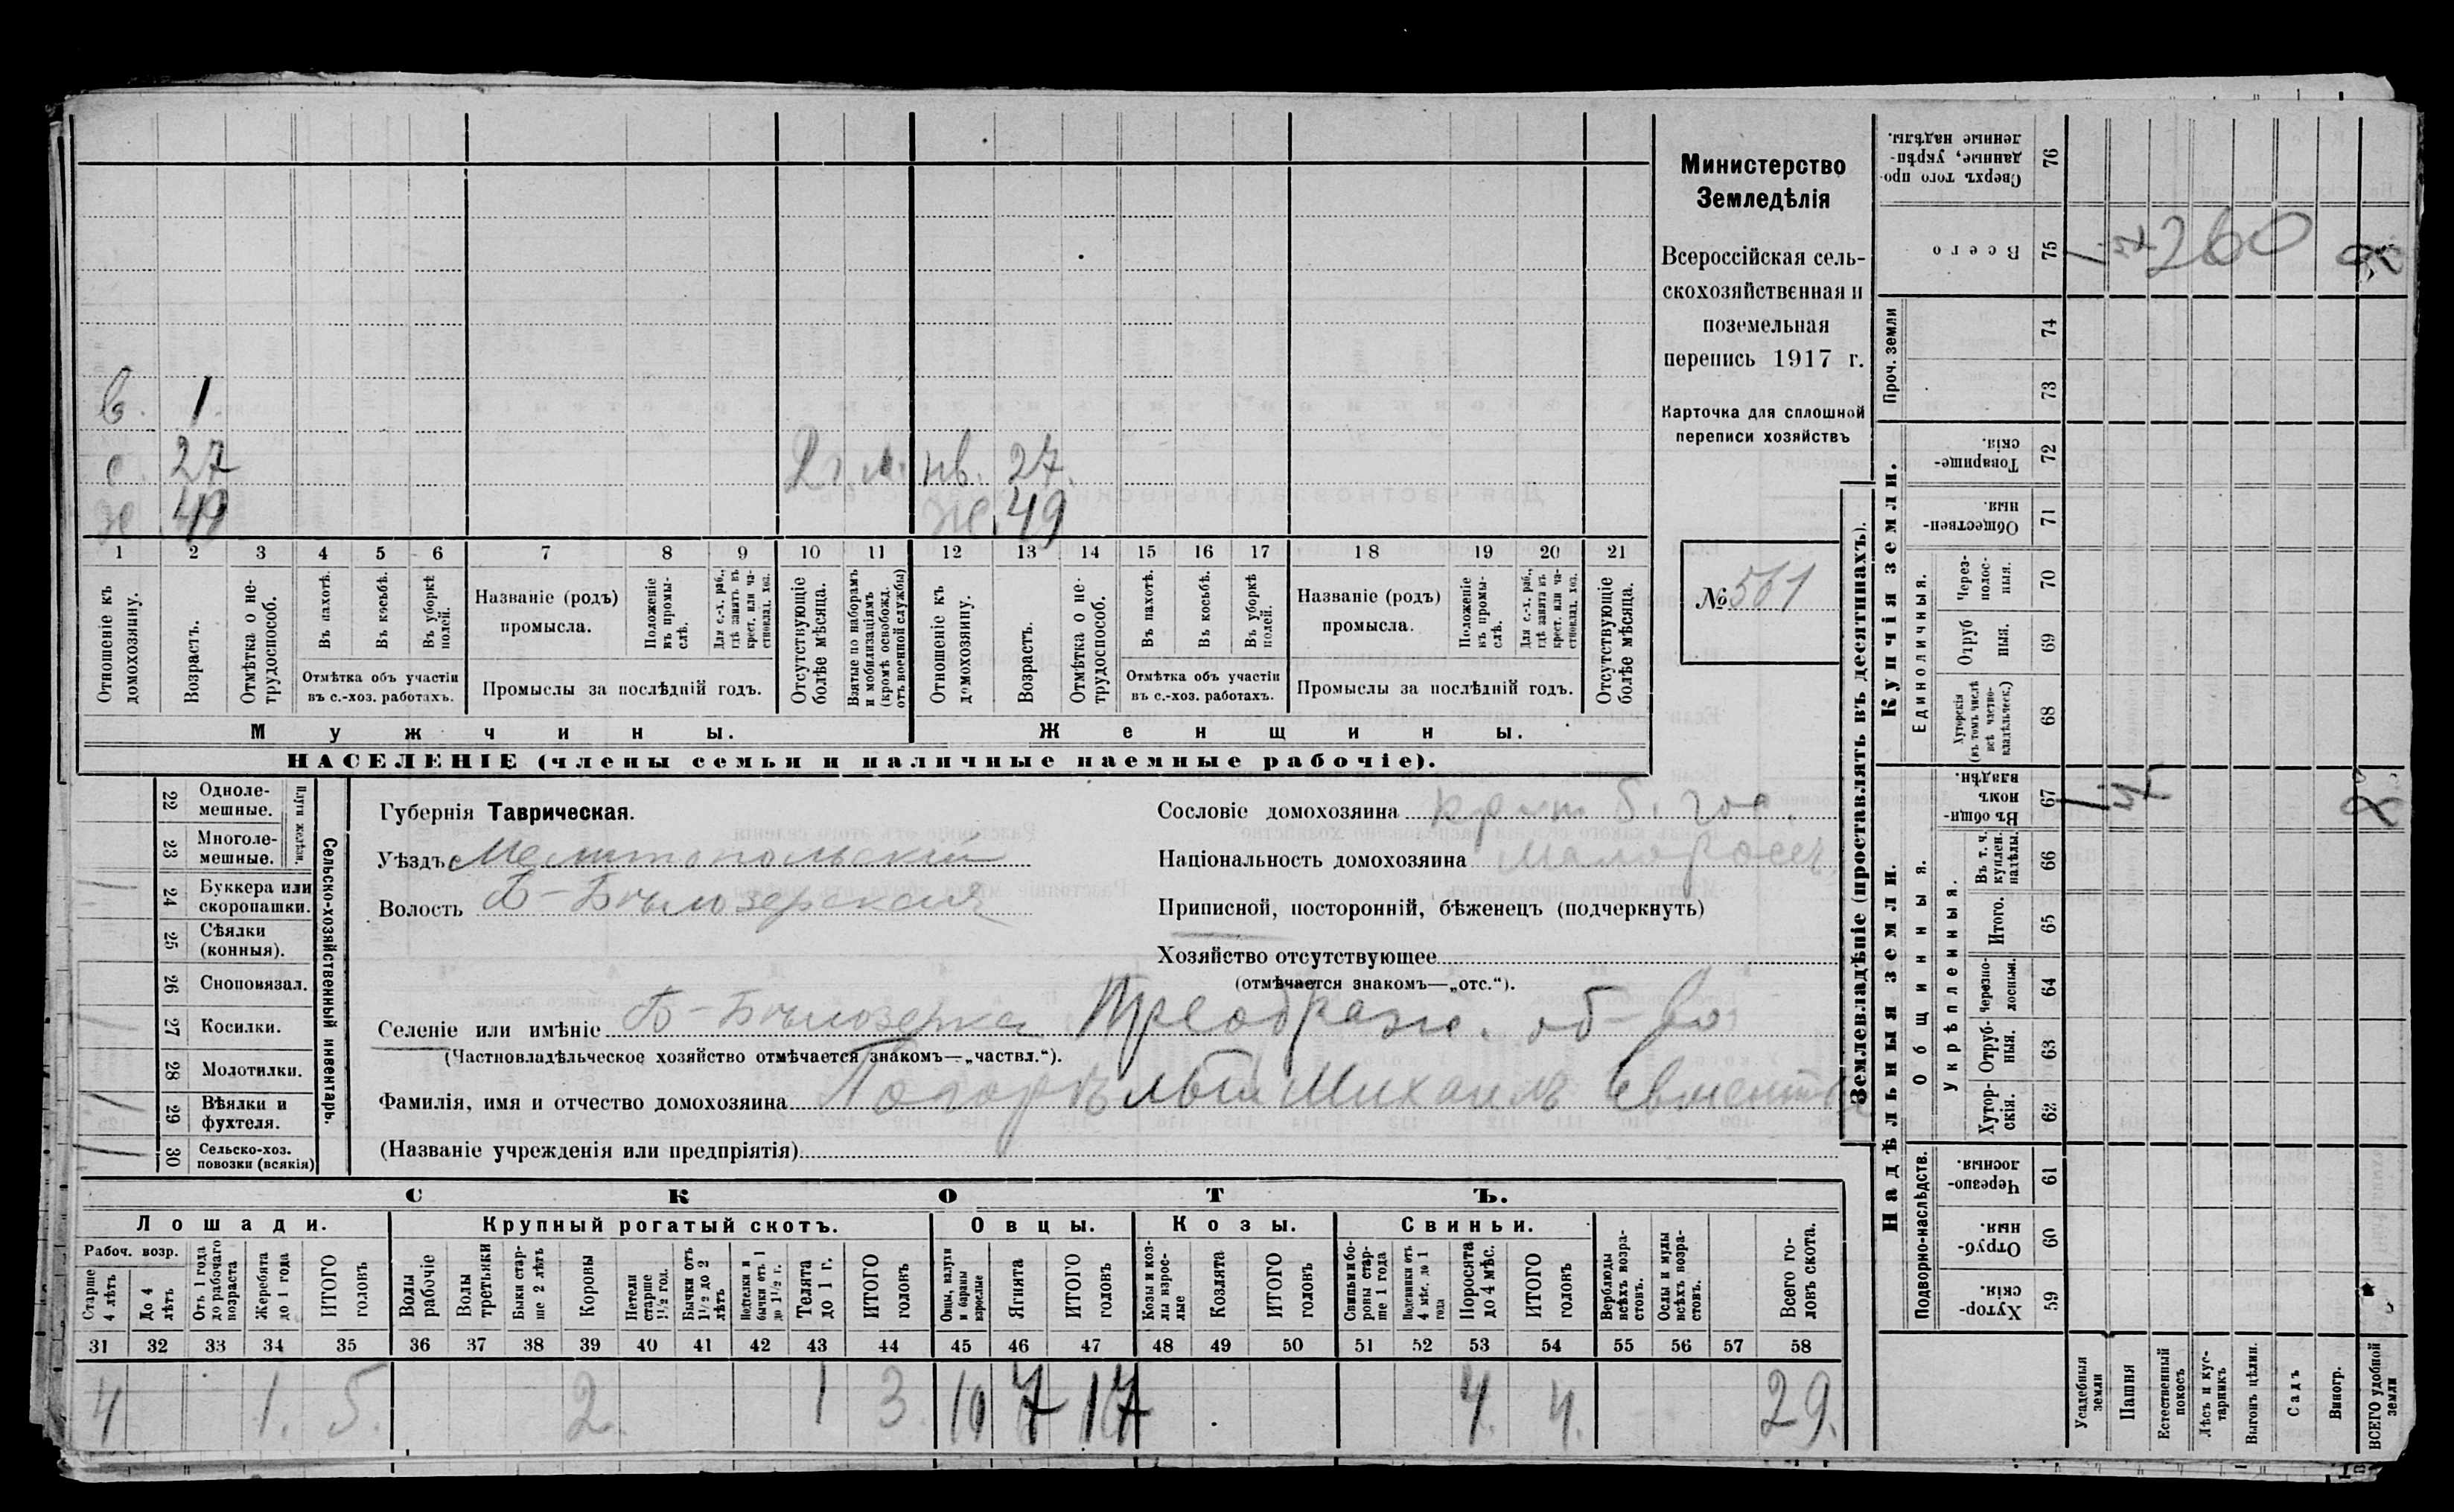 в. 1
с. 27 2 г. нв. 27.
х. 49 ж. 49
1 2 3 4 5 6 7 8 9 10 11 12 13 14 15 16 17 18 19 20 21
Отношеніе къ домохозяину.
Возрастъ.
Отмѣтка о не-трудоспособ.
Въ пахотѣ.
Въ косьбѣ.
Въ уборкѣ полей.
Отмѣтка объ участіи въ с.-хоз. работахъ.
Названіе (родъ) промысла.
Положеніе въ промы-слѣ.
Для с.-х. раб., гдѣ занятъ въ крест. или ча-стновлад. хоз.
Промыслы за послѣдній годъ.
Отсутствующіе болѣе мѣсяца.
Взятые по наборамъ и мобилизаціямъ (кромѣ освобожд. отъ военной службы)
Отношеніе къ домохозяину.
Возрастъ.
Отмѣтка о не-трудоспособ.
Въ пахотѣ.
Въ косьбѣ.
Въ уборкѣ полей.
Отмѣтка объ участіи въ с.-хоз. работахъ.
Названіе (родъ) промысла.
Положеніе въ промы-слѣ.
Для с.-х. раб., гдѣ занята въ крест. или ча-стновлад. хоз.
Промыслы за послѣдній годъ.
Отсутствующіе болѣе мѣсяца.
Мужчины. Женщины.
НАСЕЛЕНІЕ (члены семьи и наличные наемные рабочіе).
Министерство
Земледѣлія
Всероссійская сель-
скохозяйственная и
поземельная
перепись 1917 г.
Карточка для сплошной
переписи хозяйствъ
№ 561
Сельско-хозяйственный инвентарь.
Плуги желѣзн.
22 Одноле-мешные.
23 Многоле-мешные.
24 Буккера или скоропашки.
25 Сѣялки (конныя).
26 Сноповязал.
27 Косилки.
28 Молотилки.
29 Вѣялки и фухтеля.
30 Сельско-хоз. повозки (всякія)
Губернія Таврическая.
Уѣздъ Мелитопольскій
Волость Б-Бѣлозерская
Сословіе домохозяина крест б. гос.
Національность домохозяина Малоросс
Приписной, посторонній, бѣженецъ (подчеркнуть)
Хозяйство отсутствующее
(отмѣчается знакомъ—„отс.“).
Селеніе или имѣніе Б-Бѣлозерка Преображ. об-во
(Частновладѣльческое хозяйство отмѣчается знакомъ—„частвл.“).
Фамилія, имя и отчество домохозяина Погорѣлый Михаилъ
(Названіе учрежденія или предпріятія)
СКОТЪ.
Лошади. Крупный рогатый скотъ. Овцы. Козы. Свиньи.
Рабоч. возр.
Старше 4 лѣтъ
До 4 лѣтъ
Отъ 1 года до рабочаго возраста
Жеребята до 1 года
ИТОГО головъ
Волы рабочіе
Волы третьяки
Быки стар-ше 2 лѣтъ
Коровы
Нетели старше 1½ год.
Бычки отъ 1½ до 2 лѣтъ
Подтелки и бычки отъ 1 до 1½ г.
Телята до 1 г.
ИТОГО головъ
Овцы, валухи и бараны взрослые
Ягнята
ИТОГО головъ
Козы и коз-лы взрос-лые
Козлята
ИТОГО головъ
Свиньи и бо-ровы стар-ше 1 года
Подсвинки отъ 4 мѣс. до 1 года
Поросята до 4 мѣс.
ИТОГО головъ
Верблюды всѣхъ возра-стовъ.
Ослы и мулы всѣхъ возра-стовъ.
Всего го-ловъ скота.
31 32 33 34 35 36 37 38 39 40 41 42 43 44 45 46 47 48 49 50 51 52 53 54 55 56 57 58
4 1. 5. 2. 1 3. 10 7 17 4. 4. 29.
Землевладѣніе (проставлять въ десятинахъ).
Сверхъ того про-данные, укрѣп-ленные надѣлы. 76
Всего 75 260
Купчія земли.
Проч. земли 74
73
Товарище-скія. 72
Обществен-ныя. 71
Единоличныя.
Через-полос-ныя. 70
Отруб ныя. 69
Хуторскія (въ томъ числѣ всѣ частно-владѣльческ.) 68
Надѣльныя земли.
Общинныя.
Въ общи-номъ владѣн. 67
Укрѣпленныя.
Въ т. ч. куплен. надѣлы. 66
Итого. 65
Черезпо-лосныя. 64
Отруб-ныя. 63
Хутор-скія. 62
Подворно-наслѣдств.
Черезпо-лосныя. 61
Отруб-ныя. 60
Хутор-скія. 59
Усадебныя земли
Пашня
Естественный покосъ
Лѣсъ и кус-тарникъ
Выгонъ цѣлин.
Садъ
Виногр.
ВСЕГО удобной земли